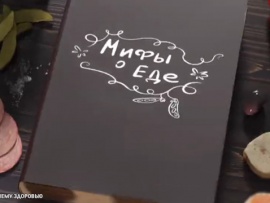 Мифы
о Еде
ЧЕМУ ЗДОРОВЬЮ